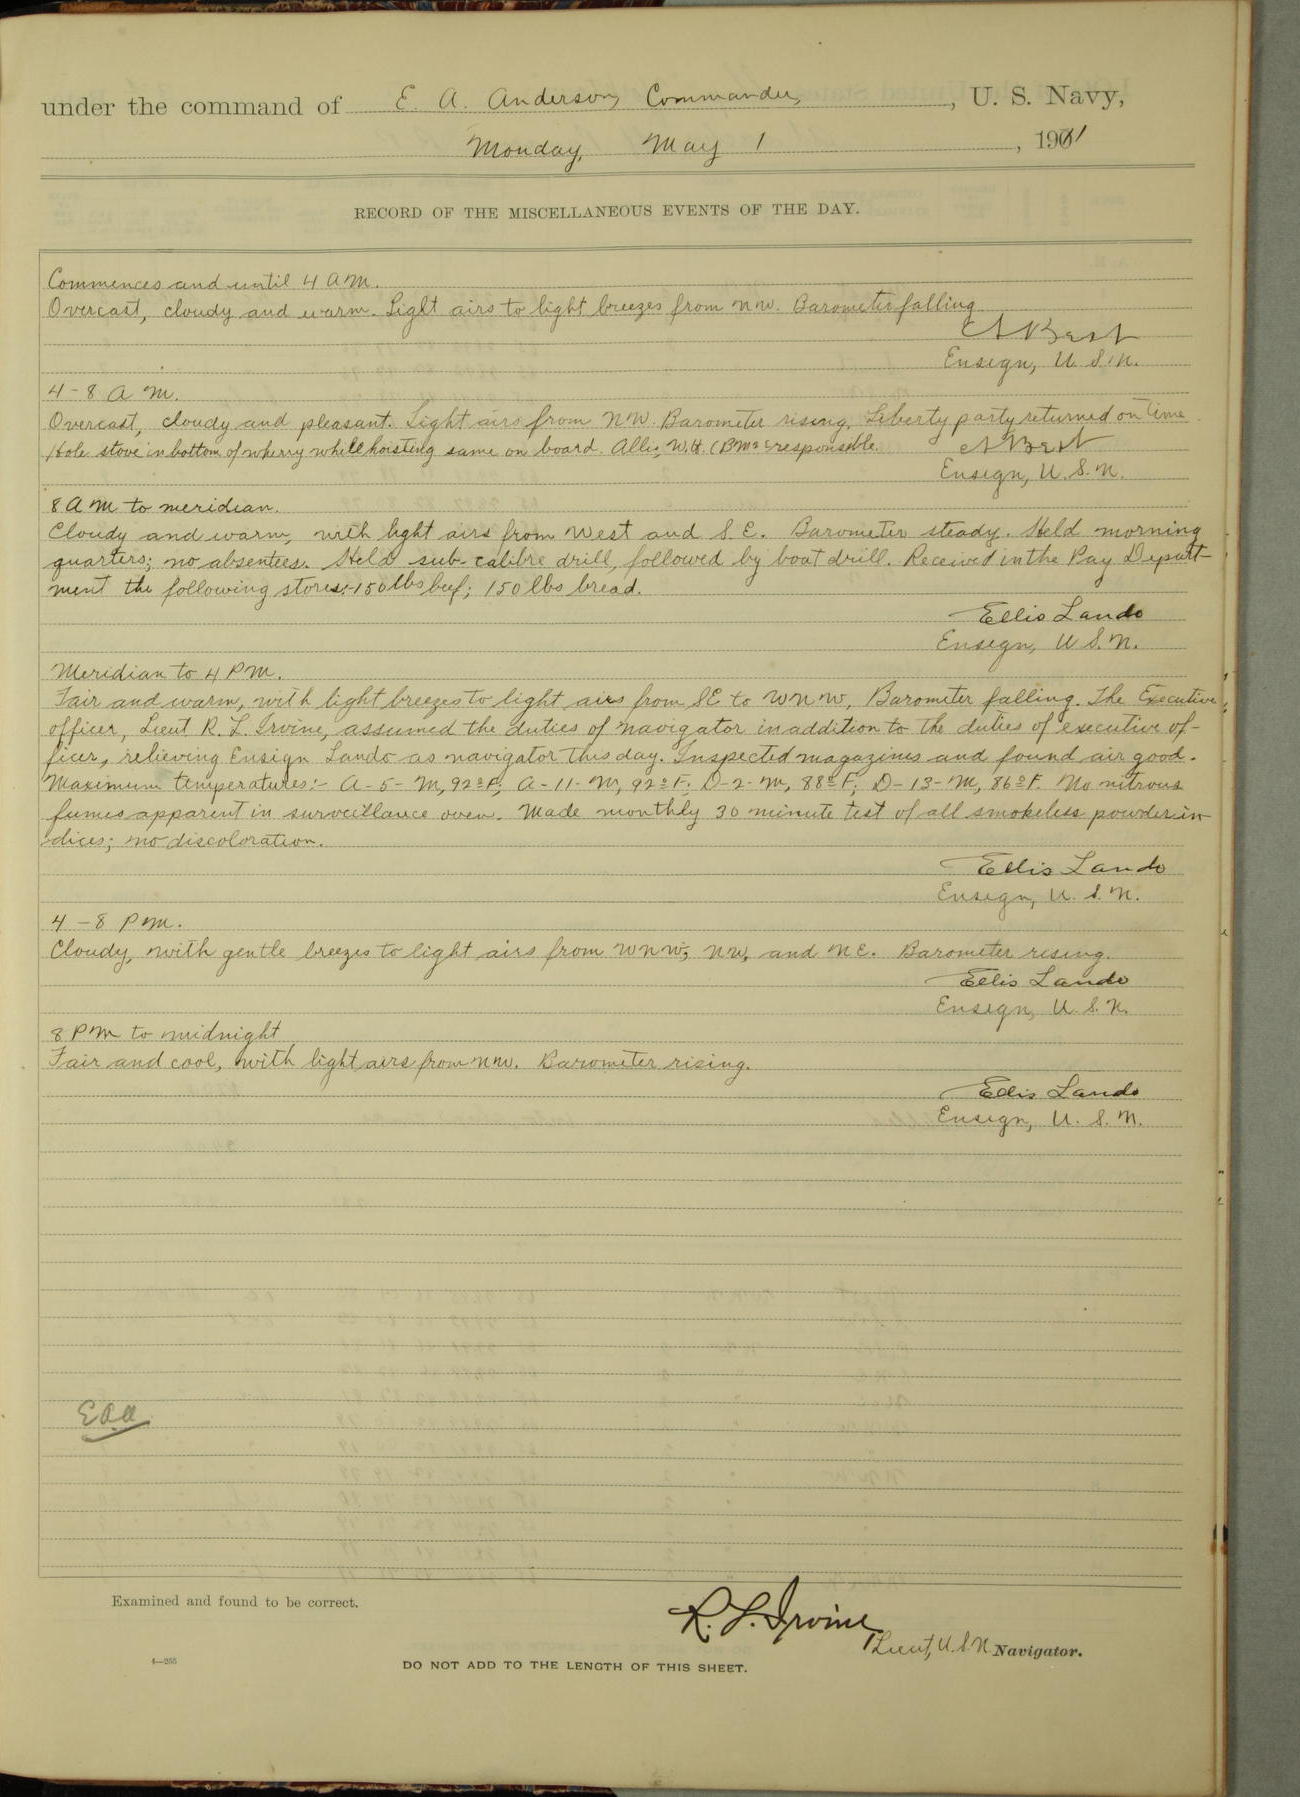 under the command of E. A. Anderson, Commander, , U. S. Navy,
Monday, May 1 , 1911
RECORD OF THE MISCELLANEOUS EVENTS OF THE DAY.
Commences and until 4 A M.
Overcast, cloudy and warm. Light airs to light breezes from NW. Barometer falling
Best
Ensign, U. S. N.
4 - 8 A M.
Overcast, cloudy and pleasant. Light airs from NW. Barometer rising, Liberty party returned on time
Hole stove in bottom of wherry while hoisting same on board. W.H. responsible.
Best
Ensign, U. S. N.
8 A M to meridian.
Cloudy and warm, with light airs from West and S.E. Barometer steady. Held morning
quarters; no absentees. Held sub-calibre drill, followed by boat drill. Received in the Pay Depart-
ment the following stores:-150 lbs beef; 150 lbs bread.
Ellis Lando
Ensign, U. S. N.
Meridian to 4 P M.
Fair and warm, with light breezes to light airs from SE to WNW, Barometer falling. The Executive
officer, Lieut R. L. Irvine, assumed the duties of navigator in addition to the duties of executive of-
ficer, relieving Ensign Lando as navigator this day. Inspected magazines and found air good.
Maximum temperatures:- A-5-M, 92°F; A-11-M, 92°F; D-2-M, 88°F; D-13-M, 86°F. No nitrous
fumes apparent in surveillance oven. Made monthly 30 minute test of all smokeless powder in-
dices; no discoloration.
Ellis Lando
Ensign, U. S. N.
4 - 8 P M.
Cloudy, with gentle breezes to light airs from WNW, NW, and NE. Barometer rising.
Ellis Lando
Ensign, U. S. N.
8 P M to midnight
Fair and cool, with light airs from NW. Barometer rising.
Ellis Lando
Ensign, U. S. N.
EAA
Examined and found to be correct.
R. L. Irvine
Lieut, U.S.N. Navigator.
4—255
DO NOT ADD TO THE LENGTH OF THIS SHEET.